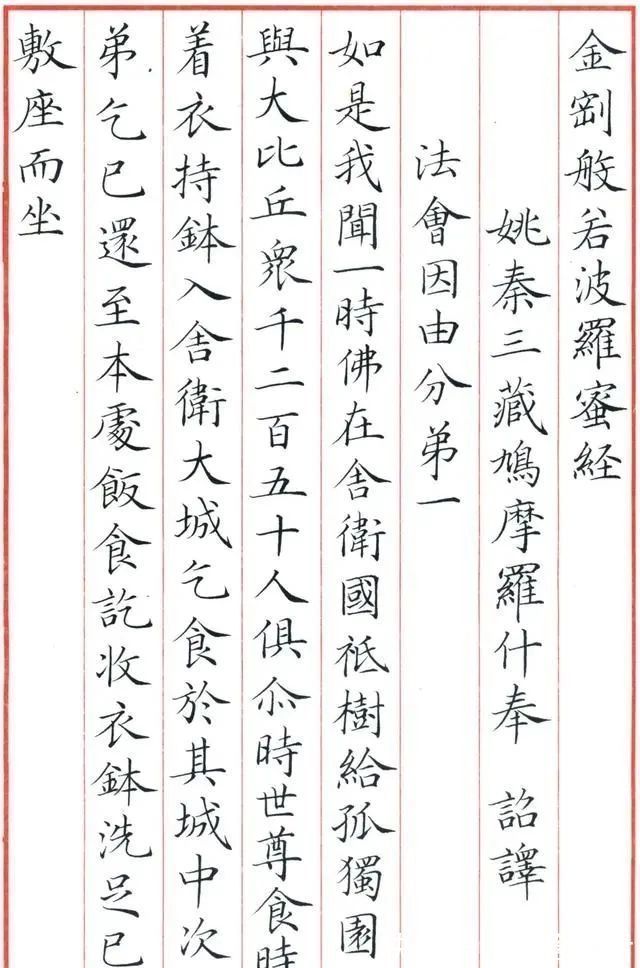 金剛般若波羅蜜経
姚秦三藏鳩摩羅什奉 詔譯
法會因由分第一
如是我聞一時佛在舍衛國祗樹給孤獨園
與大比丘衆千二百五十人俱尒時世尊食時
着衣持鉢入舍衛大城乞食於其城中次
弟乞已還至本處飯食訖收衣鉢洗足已
敷座而坐